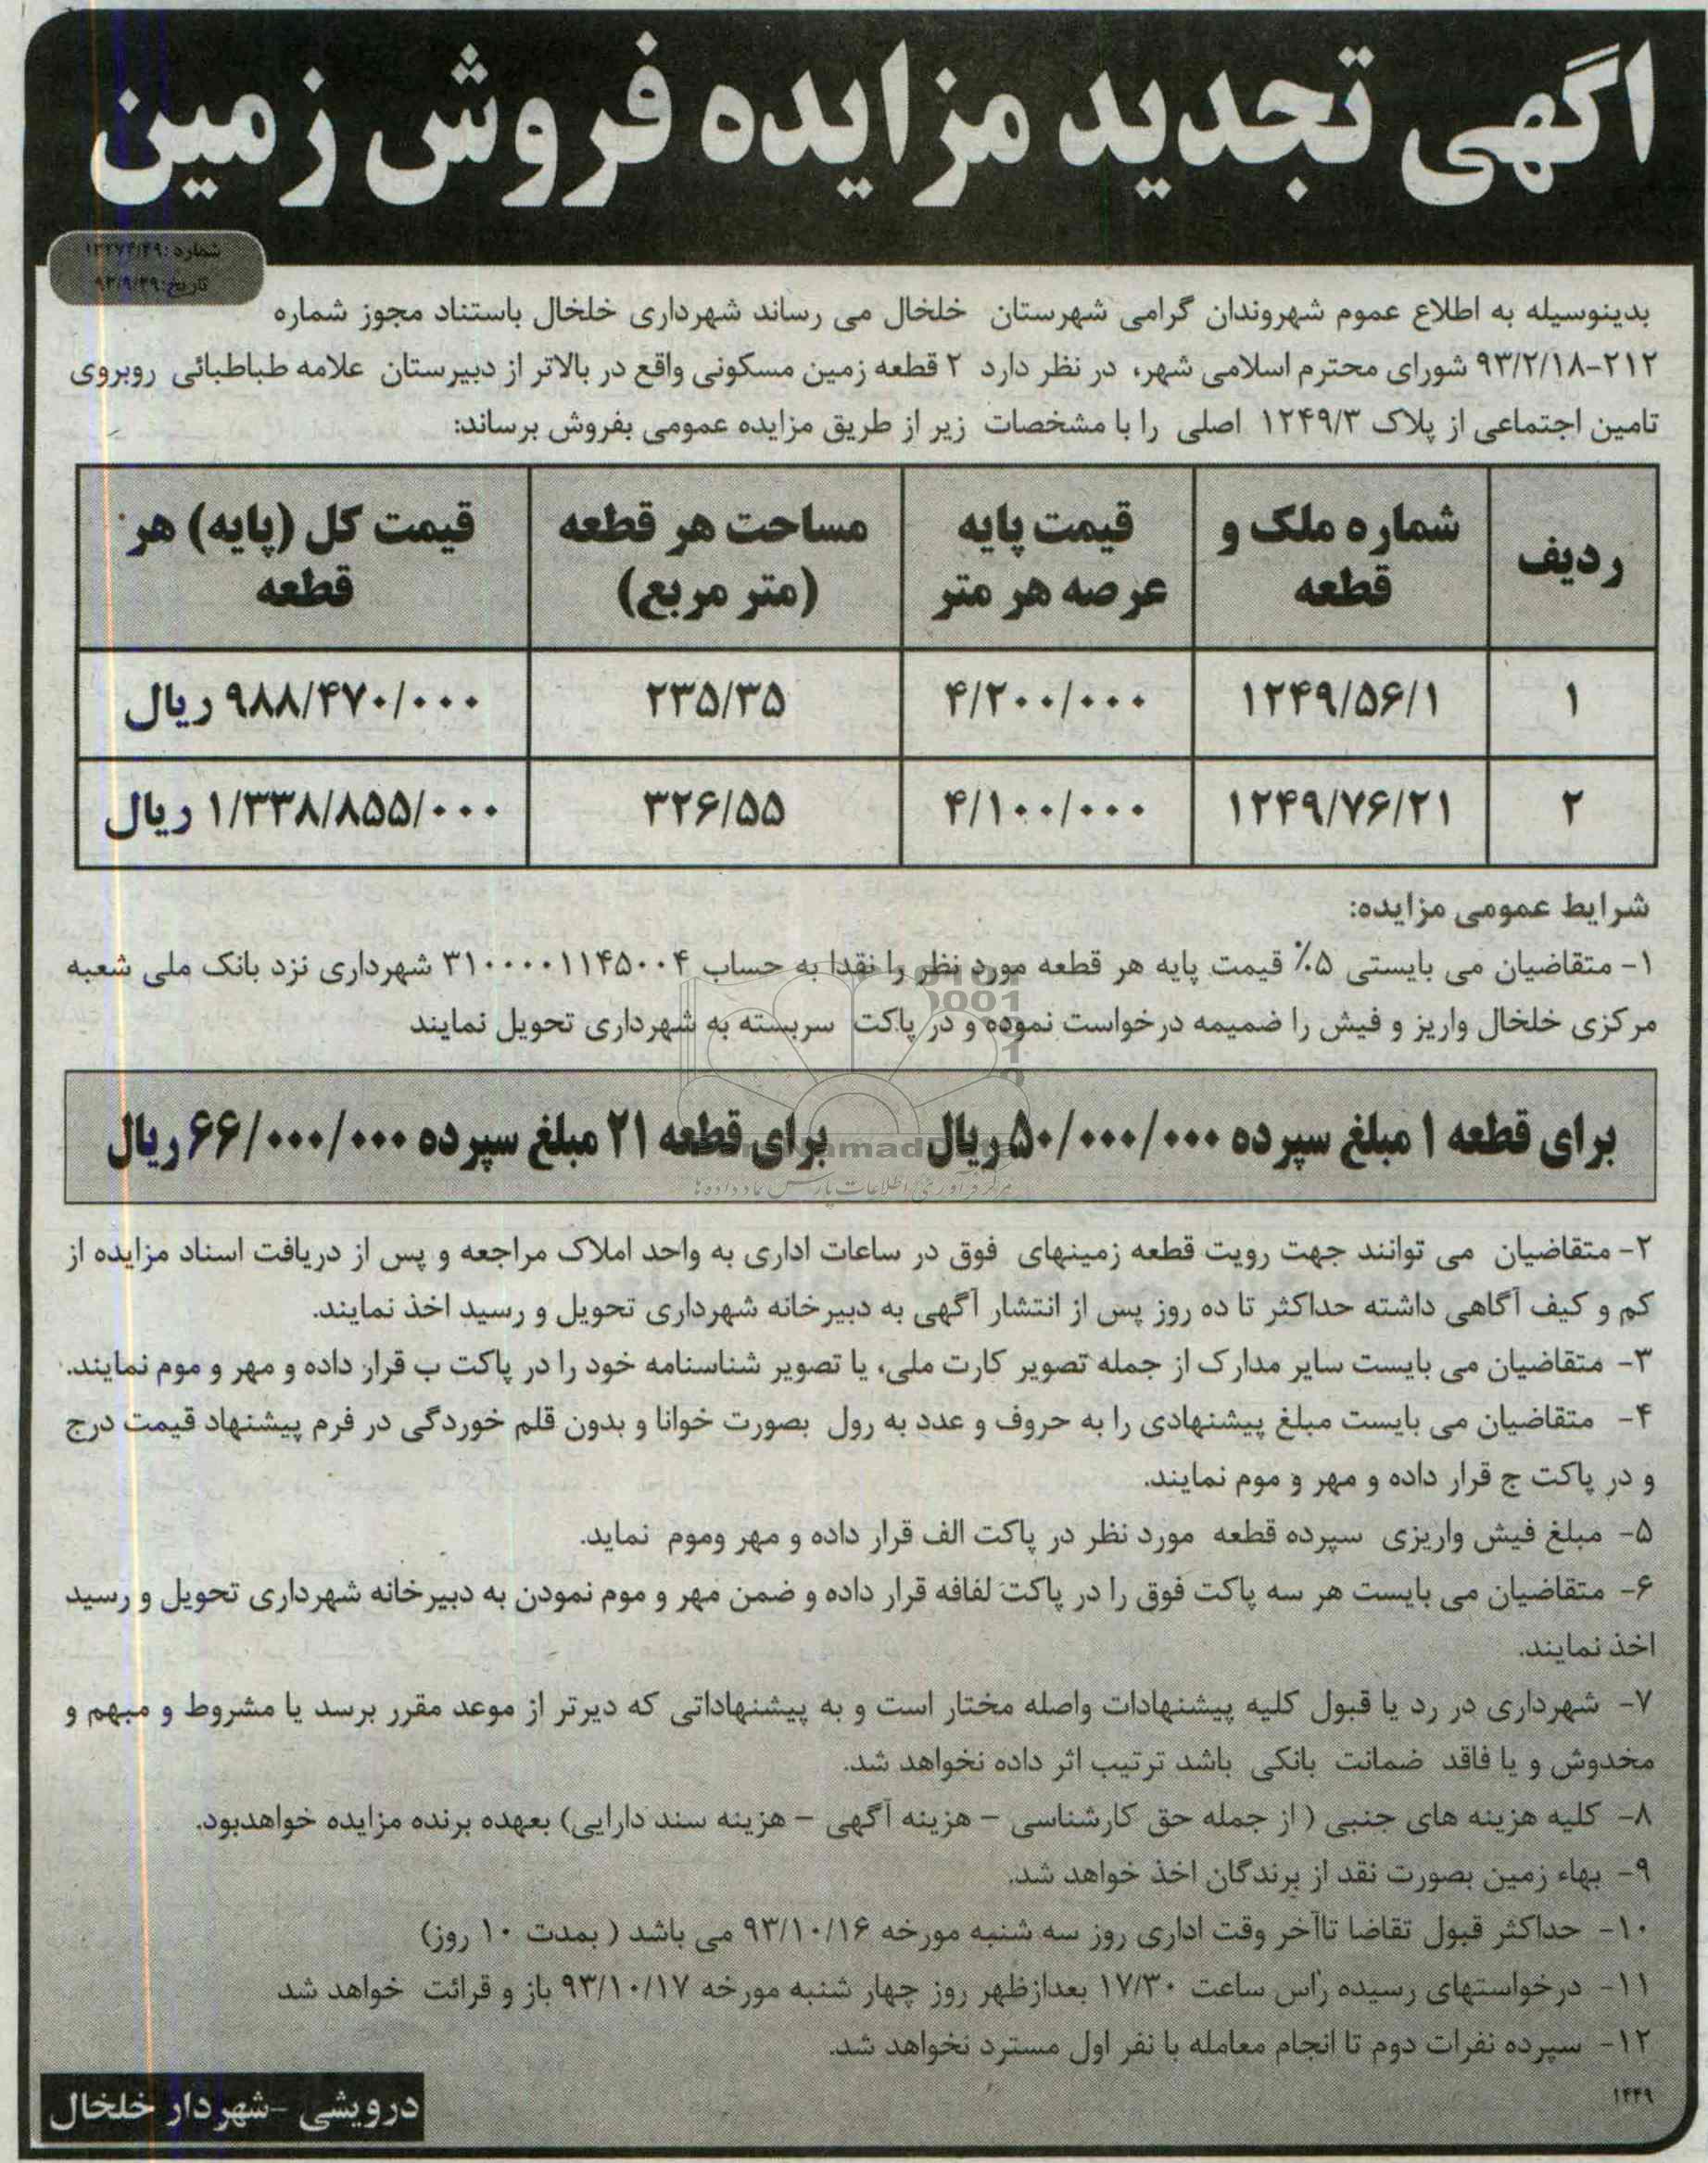 آگهی تجدید مزایده فروش زمین
بدینوسیله به اطلاع عموم شهروندان گرامی شهرستان خلخال می رساند شهرداری خلخال باستناد مجوز شماره
۲۱۲-۹۳/۲/۱۸ شورای محترم اسلامی شهر، در نظر دارد ۲ قطعه زمین مسکونی واقع در بالاتر از دبیرستان علامه طباطبائی روبروی
تامین اجتماعی از پلاک ۱۲۴۹/۳ اصلی را با مشخصات زیر از طریق مزایده عمومی بفروش برساند:
ردیف | شماره ملک و قطعه | قیمت پایه عرصه هر متر | مساحت هر قطعه (متر مربع) | قیمت کل (پایه) هر قطعه
۱ | ۱۲۴۹/۵۶/۱ | ۴/۲۰۰/۰۰۰ | ۲۳۵/۳۵ | ۹۸۸/۴۷۰/۰۰۰ ریال
۲ | ۱۲۴۹/۷۶/۲۱ | ۴/۱۰۰/۰۰۰ | ۳۲۶/۵۵ | ۱/۳۳۸/۸۵۵/۰۰۰ ریال
شرایط عمومی مزایده:
۱- متقاضیان می بایستی ۵٪ قیمت پایه هر قطعه مورد نظر را نقدا به حساب ۳۱۰۰۰۰۱۱۴۵۰۰۴ شهرداری نزد بانک ملی شعبه
مرکزی خلخال واریز و فیش را ضمیمه درخواست نموده و در پاکت سربسته به شهرداری تحویل نمایند
برای قطعه ۱ مبلغ سپرده ۵۰/۰۰۰/۰۰۰ ریال برای قطعه ۲۱ مبلغ سپرده ۶۶/۰۰۰/۰۰۰ ریال
مرکز فرآوری اطلاعات پارس نماد داده ها
۲- متقاضیان می توانند جهت رویت قطعه زمینهای فوق در ساعات اداری به واحد املاک مراجعه و پس از دریافت اسناد مزایده از
کم و کیف آگاهی داشته حداکثر تا ده روز پس از انتشار آگهی به دبیرخانه شهرداری تحویل و رسید اخذ نمایند.
۳- متقاضیان می بایست سایر مدارک از جمله تصویر کارت ملی، یا تصویر شناسنامه خود را در پاکت ب قرار داده و مهر و موم نمایند.
۴- متقاضیان می بایست مبلغ پیشنهادی را به حروف و عدد به رول بصورت خوانا و بدون قلم خوردگی در فرم پیشنهاد قیمت درج
و در پاکت ج قرار داده و مهر و موم نمایند.
۵- مبلغ فیش واریزی سپرده قطعه مورد نظر در پاکت الف قرار داده و مهر وموم نماید.
۶- متقاضیان می بایست هر سه پاکت فوق را در پاکت لفافه قرار داده و ضمن مهر و موم نمودن به دبیرخانه شهرداری تحویل و رسید
اخذ نمایند.
۷- شهرداری در رد یا قبول کلیه پیشنهادات واصله مختار است و به پیشنهاداتی که دیرتر از موعد مقرر برسد یا مشروط و مبهم و
مخدوش و یا فاقد ضمانت بانکی باشد ترتیب اثر داده نخواهد شد.
۸- کلیه هزینه های جنبی ( از جمله حق کارشناسی - هزینه آگهی - هزینه سند دارایی) بعهده برنده مزایده خواهدبود.
۹- بهاء زمین بصورت نقد از برندگان اخذ خواهد شد.
۱۰- حداکثر قبول تقاضا تاآخر وقت اداری روز سه شنبه مورخه ۹۳/۱۰/۱۶ می باشد ( بمدت ۱۰ روز)
۱۱- درخواستهای رسیده رأس ساعت ۱۷/۳۰ بعدازظهر روز چهار شنبه مورخه ۹۳/۱۰/۱۷ باز و قرائت خواهد شد
۱۲- سپرده نفرات دوم تا انجام معامله با نفر اول مسترد نخواهد شد.
۱۴۴۹
درویشی -شهردار خلخال